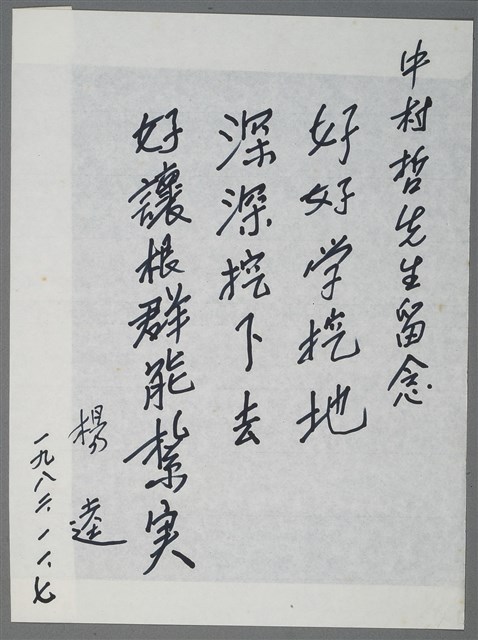 中村哲先生留念
好好学挖地
深深挖下去
好讓根群能紮実
楊逵
一九八二、一一、七